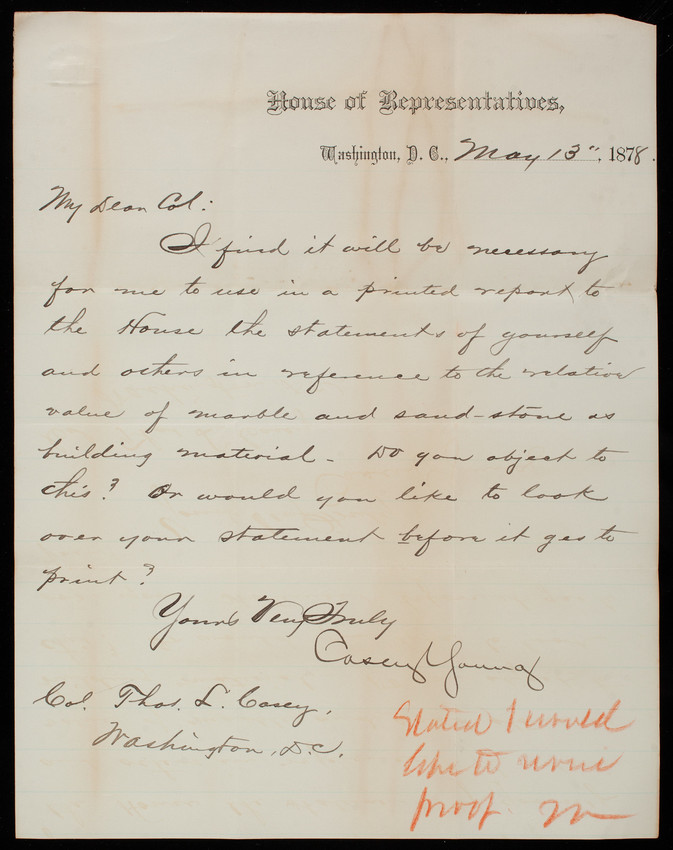 House of Representatives,
Washington, D. C., May 13", 1878.
My Dear Col:
I find it will be necessary
for me to use in a printed report to
the House the statements of yourself
and others in reference to the relative
value of marble and sand-stone as
building material - Do you object to
this? Or would you like to look
over your statement before it ges to
print?
Yours Very Truly
Casey Young
Col. Thos. L. Casey,
Washington, D.C.
Stated I would
like to
proof.